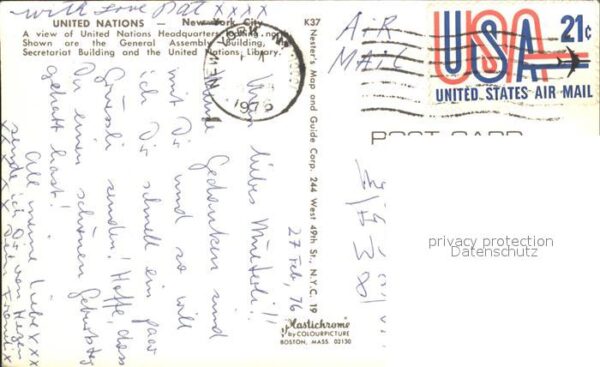 with love Dad XXXX
UNITED NATIONS — New York City
A view of United Nations Headquarters looking north.
Shown are the General Assembly Building,
Secretariat Building and the United Nations Library.
K37
Nester's Map and Guide Corp. 244 West 49th St., N.Y.C. 19
Plastichrome
by COLOURPICTURE
BOSTON, MASS. 02130
AIR
MAIL
USA 21c
UNITED STATES AIR MAIL
NEW YORK
POST CARD
27 Feb, 76
Mein liebes Müeterli!!
Meine Gedanken sind
mit Dir und so will
ich Dir schnell ein paar
Grüessli senden! Hoffe, dass
Du einen schönen Geburtstag
gehabt hast!
All meine Liebe XXX
sende ich Dir von Herzen
privacy protection
Datenschutz